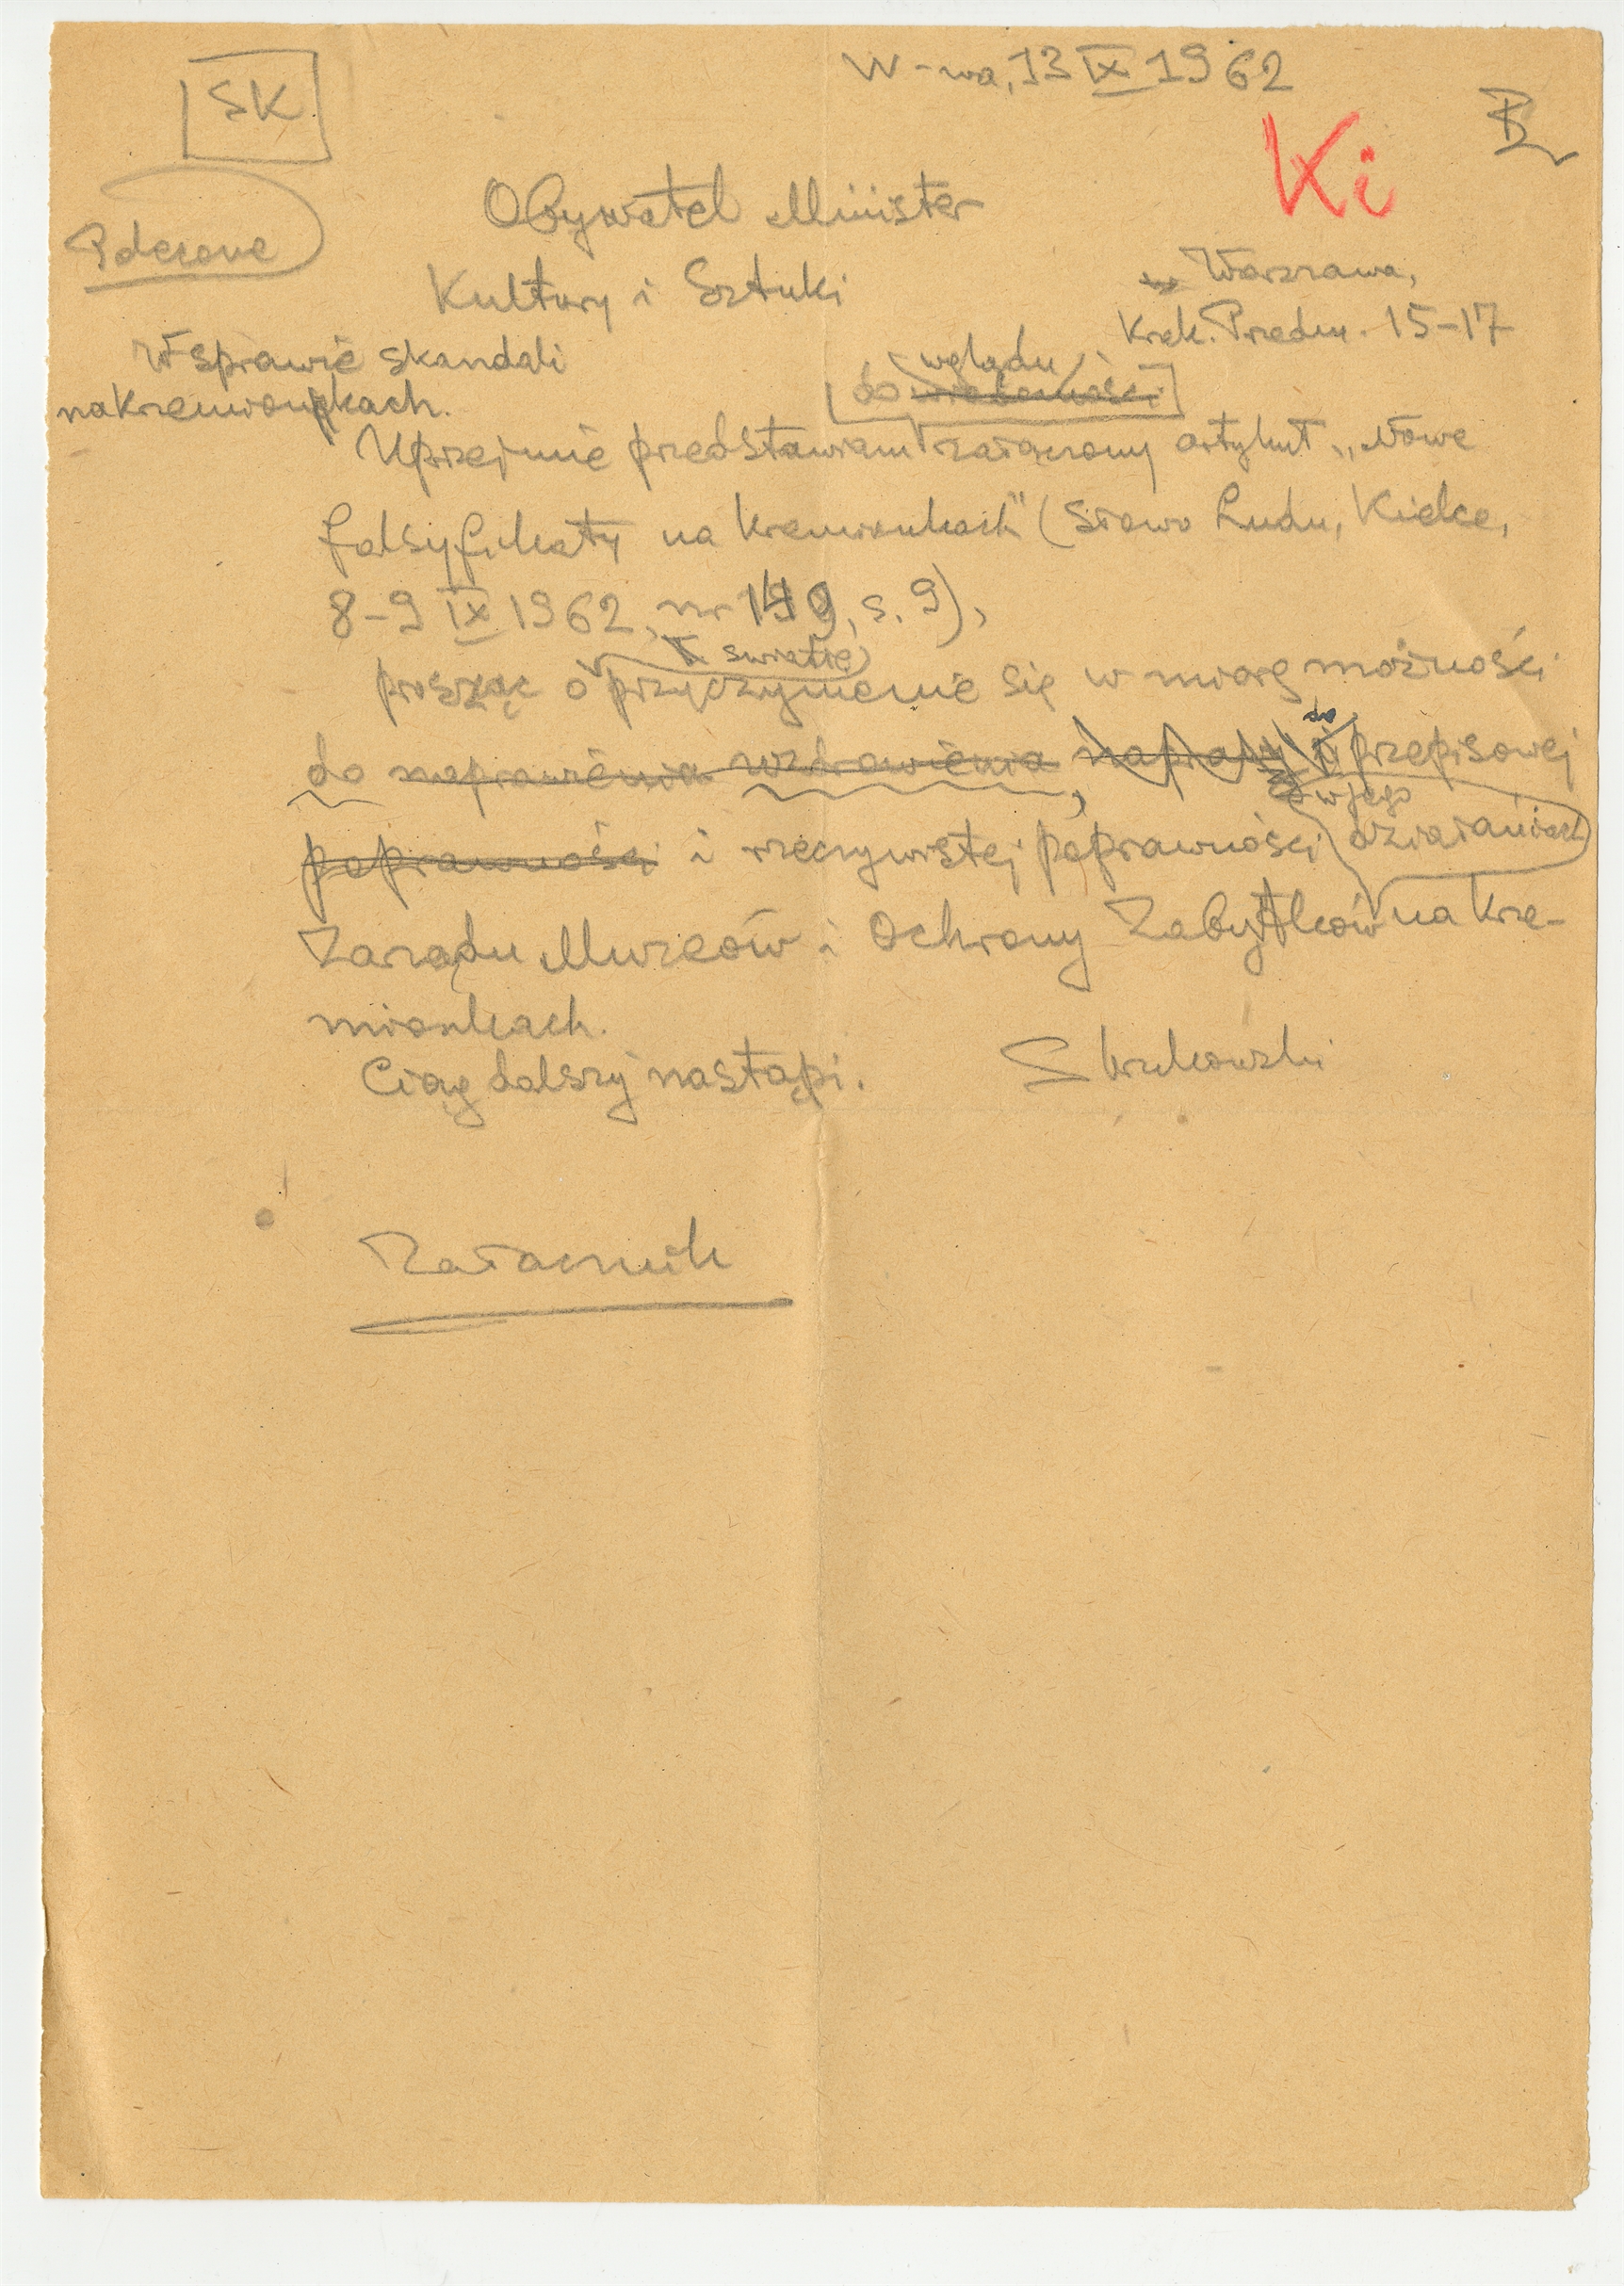 W-wa, 13 IX 1962
SK
Ki
Polecone
Obywatel Minister
Kultury i Sztuki
w Warszawa,
Krak. Przedm. 15-17
W sprawie skandali
na Krzemionkach.
wglądu
do wiadomości
Uprzejmie przedstawiam załączony artykuł „Nowe
falsyfikaty na Krzemionkach" (Słowo Ludu, Kielce,
8-9 IX 1962, nr 149, s. 9),
świetle
prosząc o przyczynienie się w miarę możności
do
do naprawienia uzdrowienia naprawy przepisowej
w jego
poprawności i rzeczywistej poprawności działaniach
Zarządu Muzeów i Ochrony Zabytków na Krze-
mionkach.
Ciąg dalszy nastąpi.
Skrukowski
Załącznik